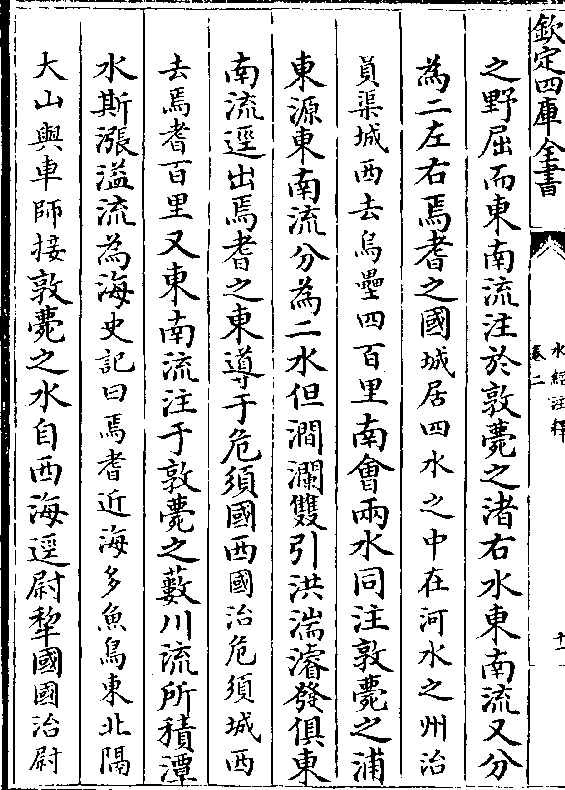 欽定四庫全書
水經注釋
卷二
十一
之野屈而東南流注於敦薨之渚右水東南流又分
為二左右焉耆之國城居四水之中在河水之州治
員渠城西去烏壘四百里南會兩水同注敦薨之浦
東源東南流分為二水但澗瀾雙引洪湍濬發俱東
南流逕出焉耆之東導于危須國西國治危須城西
去焉耆百里又東南流注于敦薨之藪川流所積潭
水斯漲溢流為海史記曰焉耆近海多魚鳥東北隔
大山與車師接敦薨之水自西海逕尉犂國國治尉